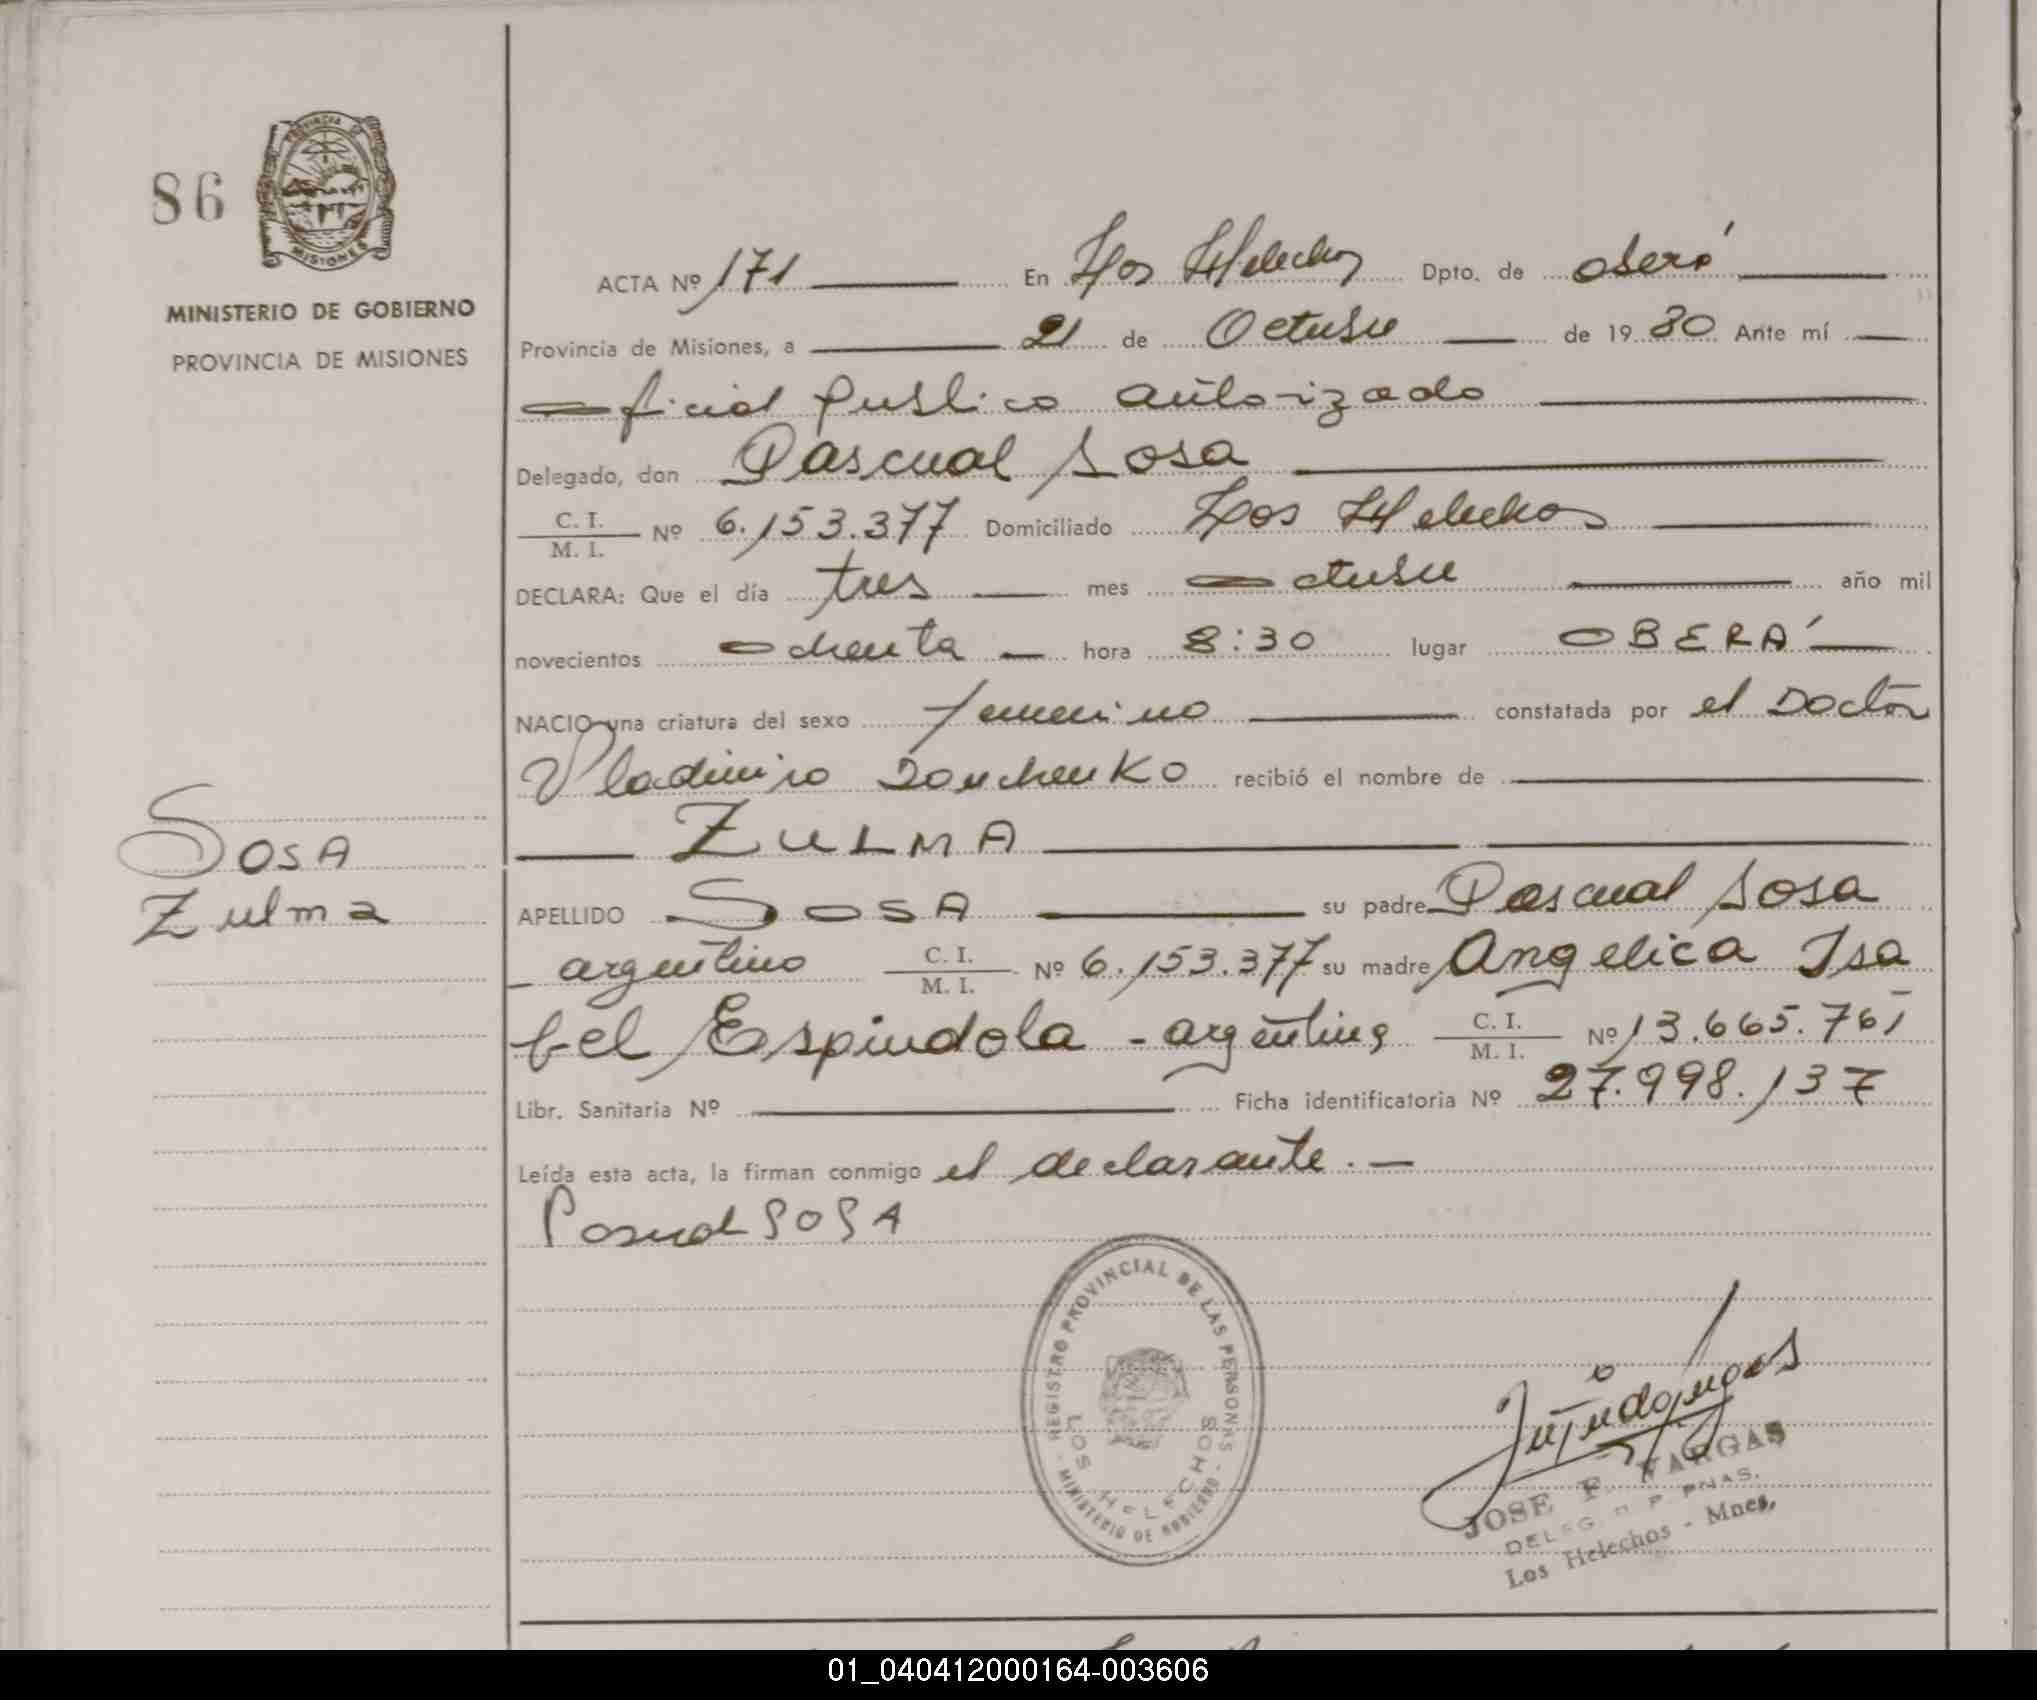 86
PROVINCIA DE
MISIONES
MINISTERIO DE GOBIERNO
PROVINCIA DE MISIONES
ACTA Nº 171 En Los Helechos Dpto. de oberá
Provincia de Misiones, a 21 de Octubre de 1980 Ante mí
oficial publico autorizado
Delegado, don Pascual Sosa
C. I.
M. I. Nº 6.153.377 Domiciliado Los Helechos
DECLARA: Que el día tres mes octubre año mil
novecientos ochenta hora 8:30 lugar OBERÁ
NACIO una criatura del sexo femenino constatada por el Doctor
Vladimiro recibió el nombre de
ZULMA
Sosa
Zulma
APELLIDO SOSA su padre Pascual Sosa
argentino C. I.
M. I. Nº 6.153.377 su madre Angelica Isa
bel Espindola - argentina C. I.
M. I. Nº 13.665.761
Libr. Sanitaria Nº Ficha identificatoria Nº 27.998.137
Leída esta acta, la firman conmigo el declarante. -
Pascual SOSA
REGISTRO PROVINCIAL DE LAS PERSONAS
LOS HELECHOS
- MINISTERIO DE GOBIERNO -
JOSE F. VARGAS
DELEG. R. P. PNAS.
Los Helechos - Mnes,
01_040412000164-003606